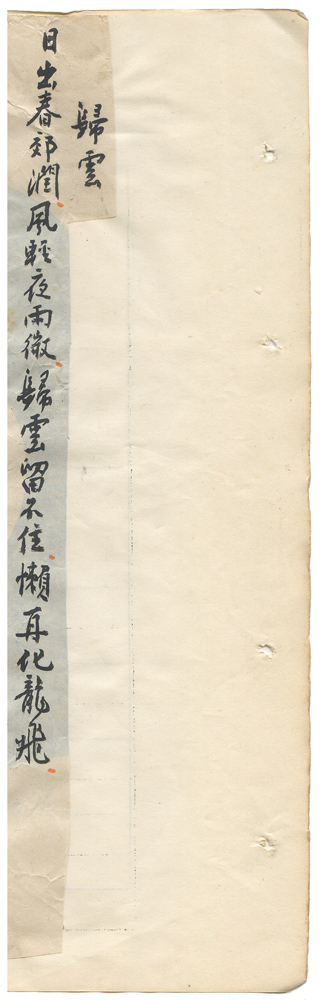 歸雲
日出春郊潤風輕夜雨微歸雲留不住懶再化龍飛